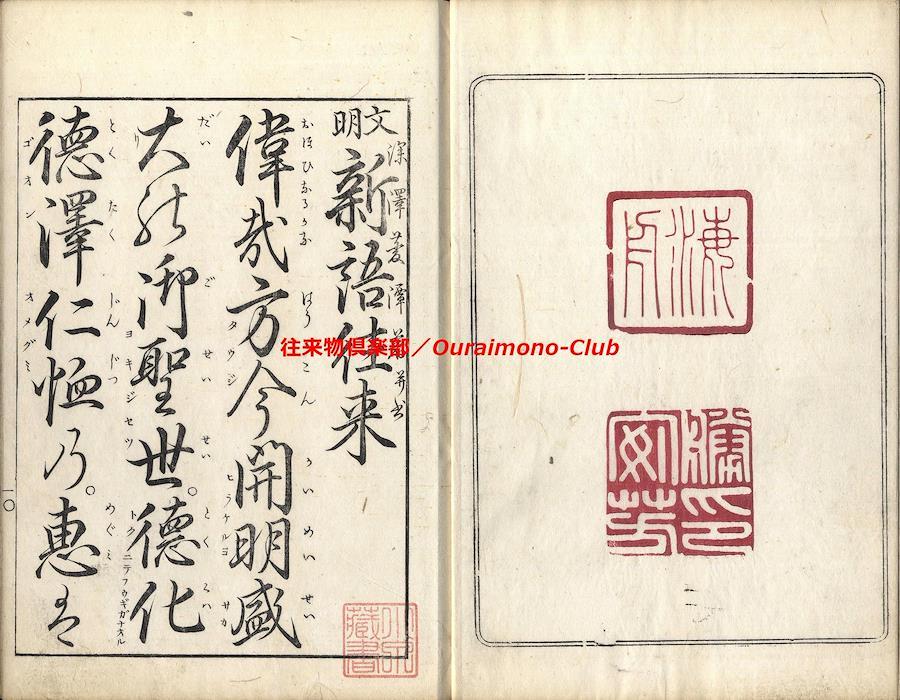 海舟
勝印
安芳
文明 新語往来
深澤菱潭
偉哉方今開明盛
おほひなるかな はうこん かいめいせい
タヾイマ ヒラケルヨ サカ
大能御聖世。徳化
だい ごせいせい とくくハ
ヨキジセツ
德澤仁恤乃。恵者
とくたく じんじつ めぐミ
ゴオン オメグミ
一〇
藏書
往来物倶楽部／Ouraimono-Club